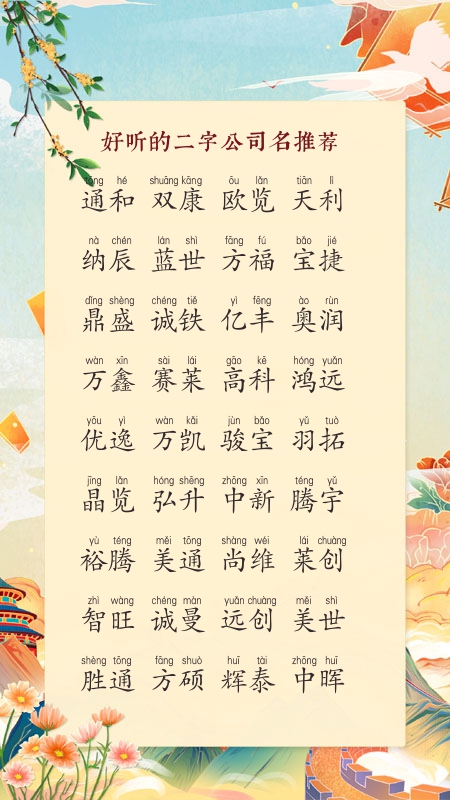 好听的二字公司名推荐
tōng hé shuāng kāng ōu lǎn tiān lì
通和 双康 欧览 天利
nà chén lán shì fāng fú bǎo jié
纳辰 蓝世 方福 宝捷
dǐng shèng chéng tiě yì fēng ào rùn
鼎盛 诚铁 亿丰 奥润
wàn xīn sài lái gāo kē hóng yuǎn
万鑫 赛莱 高科 鸿远
yōu yì wàn kǎi jùn bǎo yǔ tuò
优逸 万凯 骏宝 羽拓
jīng lǎn hóng shēng zhōng xīn téng yǔ
晶览 弘升 中新 腾宇
yù téng měi tōng shàng wéi lái chuàng
裕腾 美通 尚维 莱创
zhì wàng chéng màn yuǎn chuàng měi shì
智旺 诚曼 远创 美世
shèng tōng fāng shuò huī tài zhōng huī
胜通 方硕 辉泰 中晖